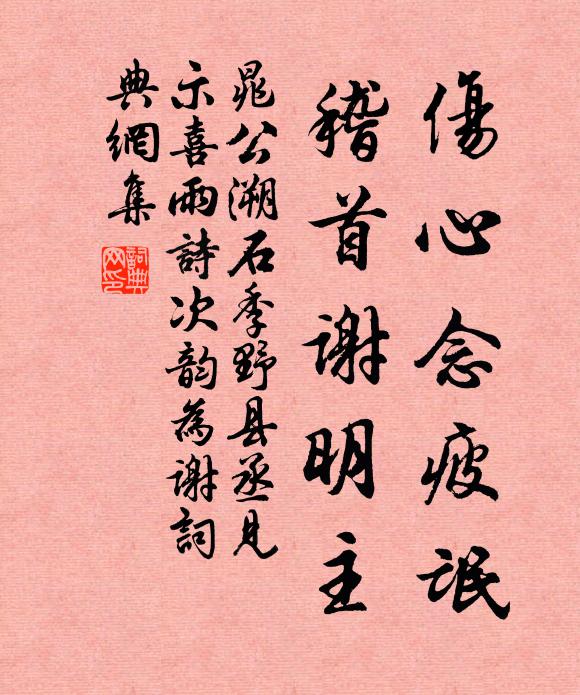 傷心念疲氓
稽首謝明主
晁公溯石季野县丞見
示喜雨詩次韵為謝詞
典網集
詞典网印